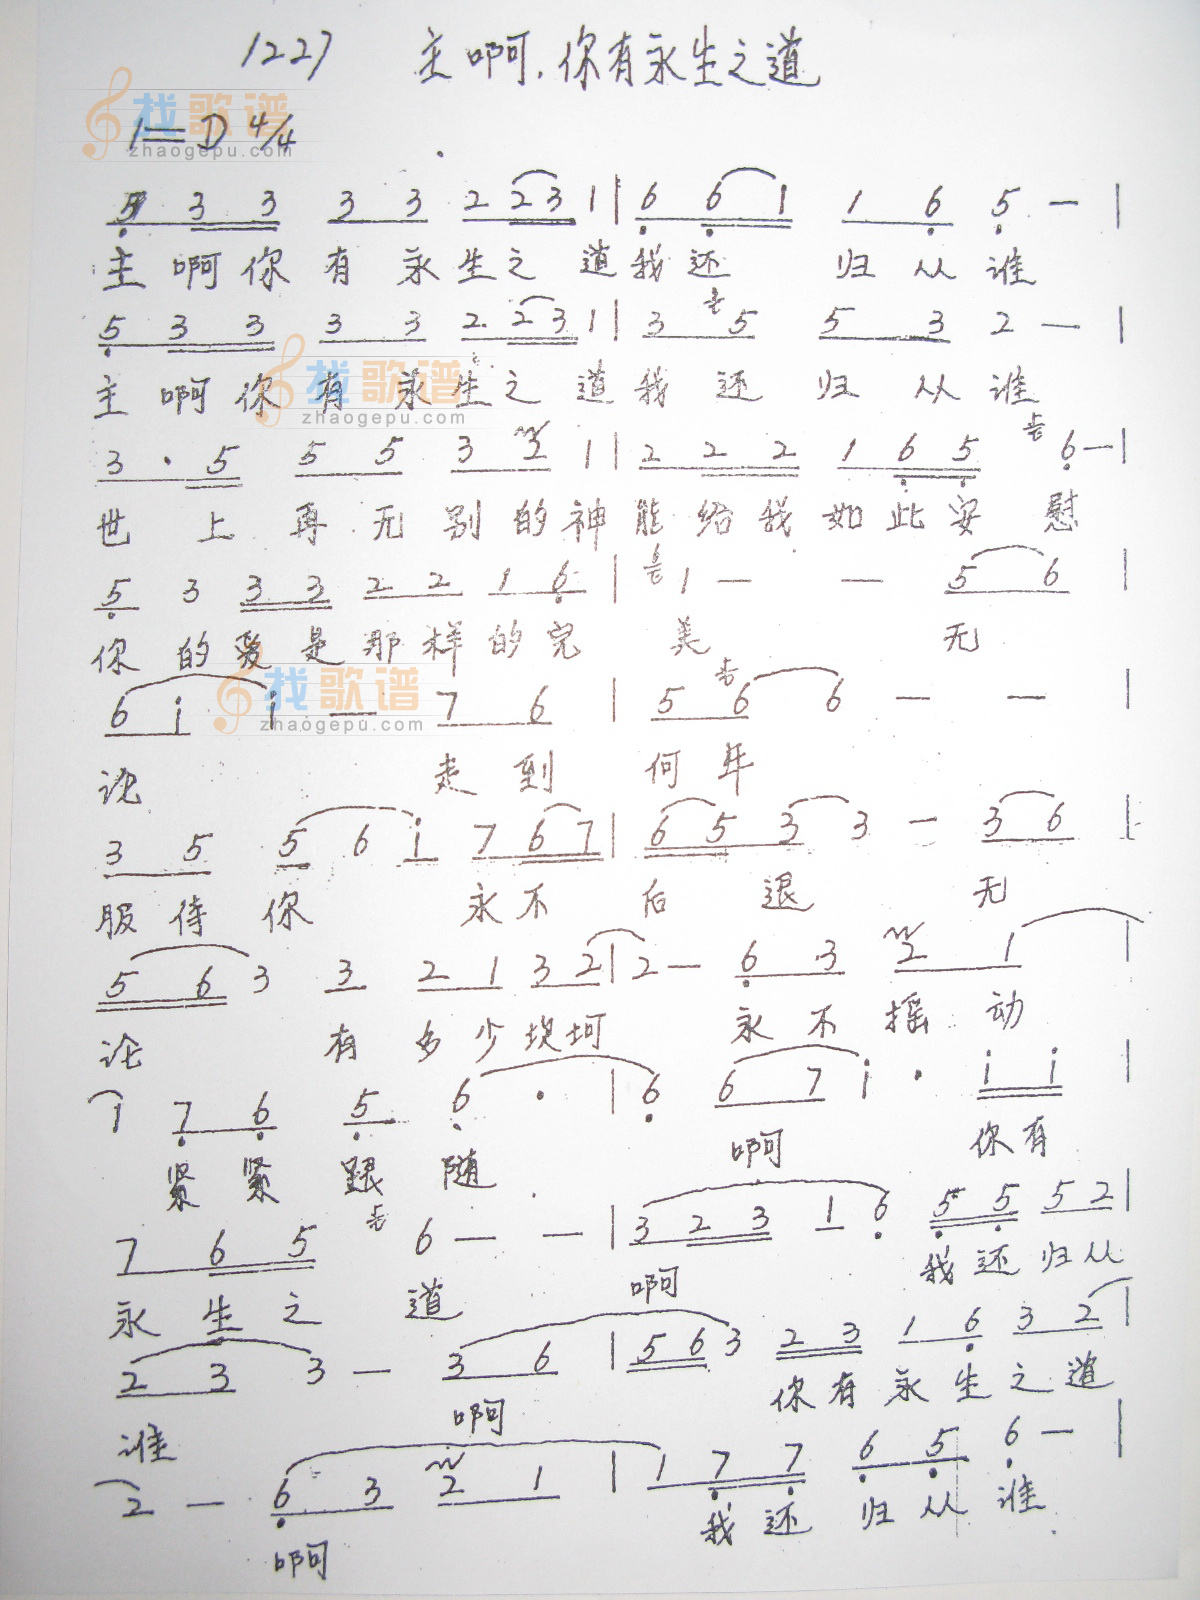 1227 主啊,你有永生之道
找歌谱
zhaogepu.com
1=D 4/4
5 3 3 3 3 2 2 3 1 | 6 6 1 1 6 5 — |
主啊你有永生之道我还归从谁
5 3 3 3 3 2 2 3 1 | 3 5 5 3 2 — |
主啊你有永生之道我还归从谁
找歌谱
zhaogepu.com
3 · 5 5 5 3 2 1 | 2 2 2 1 6 5 6 — |
世上再无别的神能给我如此安慰
5 3 3 3 2 2 1 6 | 1 — — 5 6 |
你的爱是那样的完美无
找歌谱
zhaogepu.com
6 i i — 7 6 | 5 6 6 — — |
论走到何年
3 5 5 6 i 7 6 7 | 6 5 3 3 — 3 6 |
服侍你永不后退无
5 6 3 3 2 1 3 2 | 2 — 6 3 2 1 |
论有多少坎坷永不摇动
1 7 6 5 6 · | 6 6 7 i · i i |
紧紧跟随啊你有
7 6 5 6 — — | 3 2 3 1 6 5 5 5 2 |
永生之道啊我还归从
2 3 3 — 3 6 | 5 6 3 2 3 1 6 3 2 |
谁啊你有永生之道
2 — 6 3 2 1 | 1 7 7 6 5 6 — |
啊我还归从谁